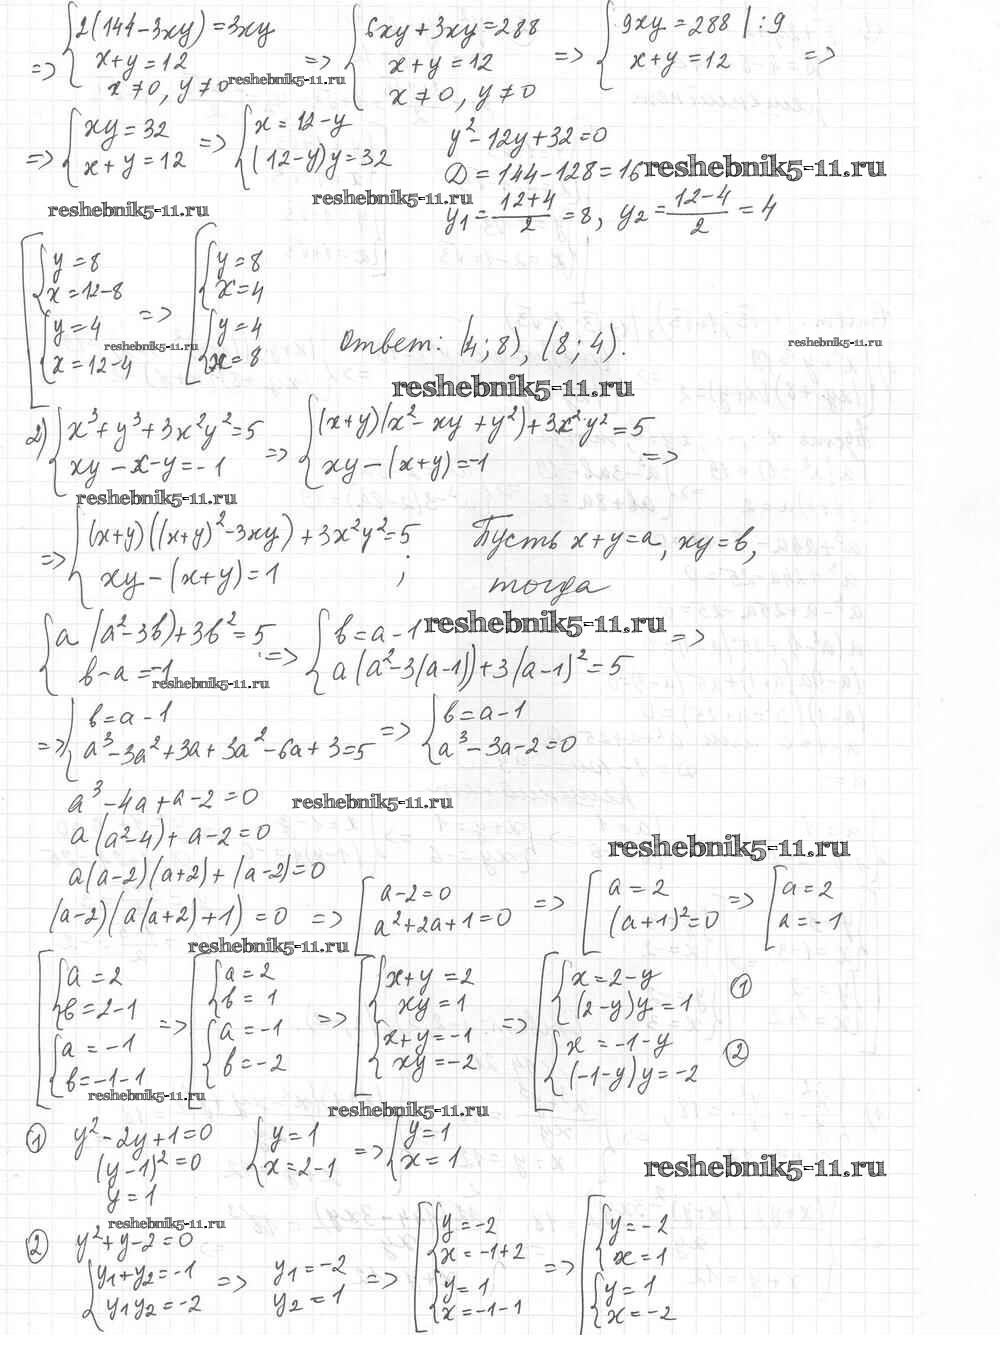 => { 2(144-3xy) = 3xy
x+y = 12
x ≠ 0, y ≠ 0
=> { 6xy + 3xy = 288
x+y = 12
x ≠ 0, y ≠ 0
=> { 9xy = 288 | :9
x+y = 12
=>
reshebnik5-11.ru
=> { xy = 32
x+y = 12
=> { x = 12-y
(12-y)y = 32
y² - 12y + 32 = 0
D = 144-128 = 16
y₁ = (12+4)/2 = 8, y₂ = (12-4)/2 = 4
reshebnik5-11.ru
reshebnik5-11.ru
reshebnik5-11.ru
[ { y = 8
x = 12-8
{ y = 4
x = 12-4
=> [ { y = 8
x = 4
{ y = 4
x = 8
Ответ: (4; 8), (8; 4).
reshebnik5-11.ru
reshebnik5-11.ru
reshebnik5-11.ru
2) { x³ + y³ + 3x²y² = 5
xy - x - y = -1
=> { (x+y)(x² - xy + y²) + 3x²y² = 5
xy - (x+y) = -1
=>
reshebnik5-11.ru
=> { (x+y)((x+y)² - 3xy) + 3x²y² = 5
xy - (x+y) = 1 ;
Пусть x+y = a, xy = b,
тогда
{ a(a² - 3b) + 3b² = 5
b - a = -1
=> { b = a-1
a(a² - 3(a-1)) + 3(a-1)² = 5
=>
reshebnik5-11.ru
reshebnik5-11.ru
=> { b = a-1
a³ - 3a² + 3a + 3a² - 6a + 3 = 5
=> { b = a-1
a³ - 3a - 2 = 0
a³ - 4a + a - 2 = 0
reshebnik5-11.ru
a(a² - 4) + a - 2 = 0
reshebnik5-11.ru
a(a-2)(a+2) + (a-2) = 0
(a-2)(a(a+2)+1) = 0 => [ a-2 = 0
a² + 2a + 1 = 0
=> [ a = 2
(a+1)² = 0
=> [ a = 2
a = -1
reshebnik5-11.ru
[ { a = 2
b = 2-1
{ a = -1
b = -1-1
=> [ { a = 2
b = 1
{ a = -1
b = -2
=> [ { x+y = 2
xy = 1
{ x+y = -1
xy = -2
=> [ { x = 2-y
(2-y)y = 1
①
{ x = -1-y
(-1-y)y = -2
②
reshebnik5-11.ru
reshebnik5-11.ru
① y² - 2y + 1 = 0
(y-1)² = 0
y = 1
{ y = 1
x = 2-1
=> { y = 1
x = 1
reshebnik5-11.ru
reshebnik5-11.ru
② y² + y - 2 = 0
{ y₁ + y₂ = -1
y₁y₂ = -2
=> y₁ = -2
y₂ = 1
=> [ { y = -2
x = -1+2
{ y = 1
x = -1-1
=> [ { y = -2
x = 1
{ y = 1
x = -2